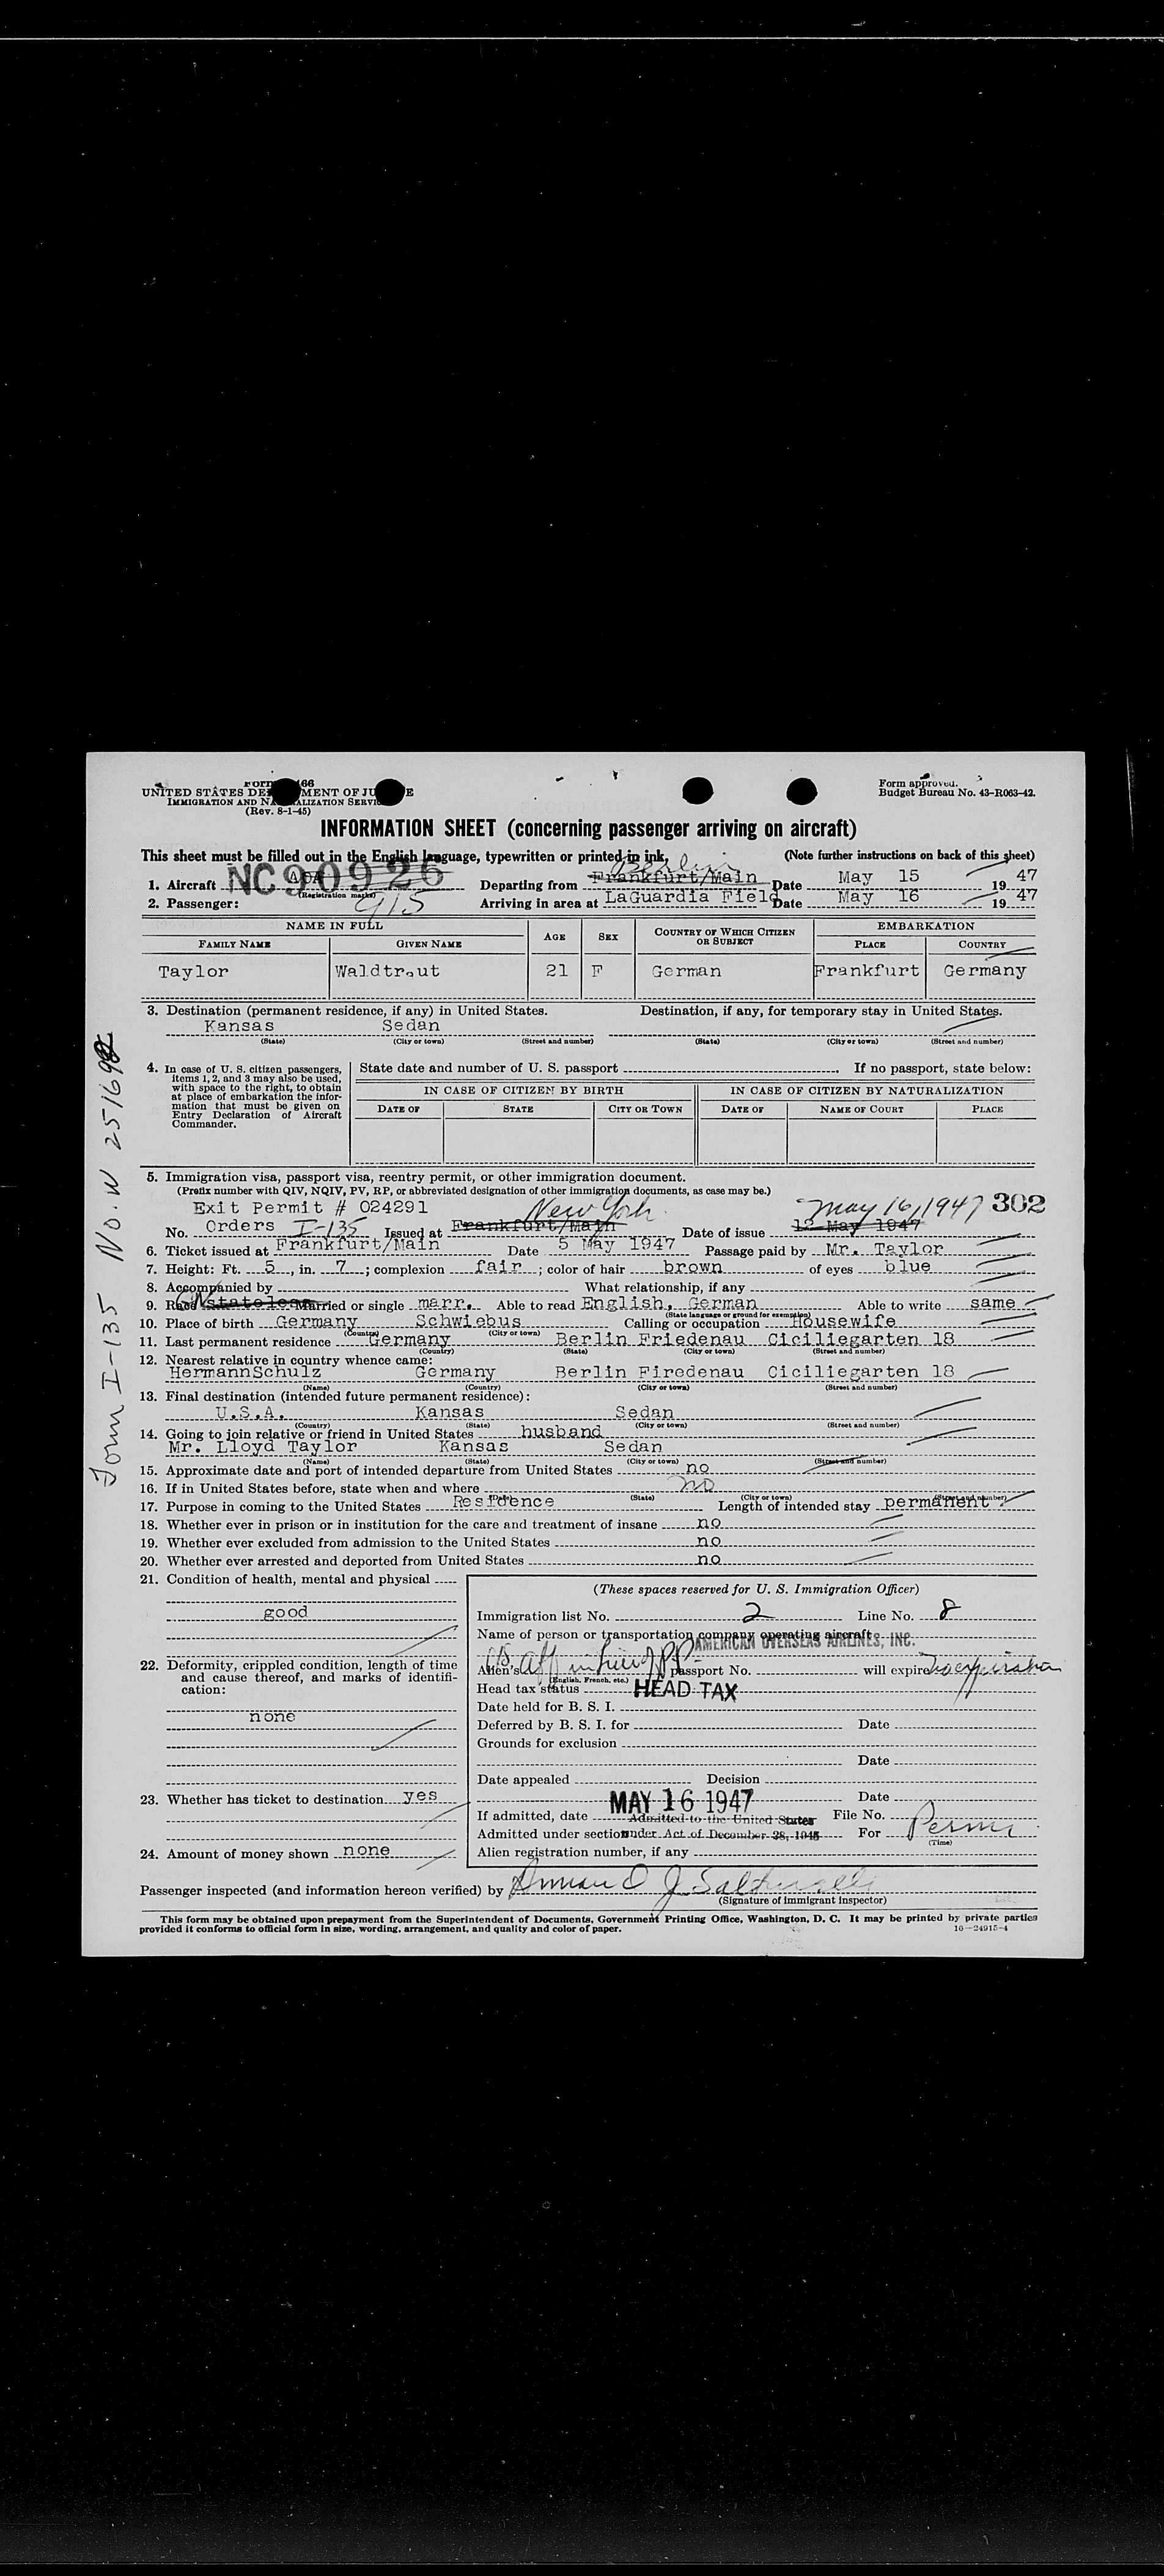 Form 66
UNITED STATES DE MENT OF JU E
IMMIGRATION AND NA ALIZATION SERVIC
(Rev. 8-1-45)
Form approved.
Budget Bureau No. 43-R063-42.
INFORMATION SHEET (concerning passenger arriving on aircraft)
This sheet must be filled out in the English language, typewritten or printed in ink. (Note further instructions on back of this sheet)
1. Aircraft AOA NC90926 (Registration marks) Departing from Frankfurt/Main Berlin Date May 15 1947
2. Passenger: 915 Arriving in area at LaGuardia Field Date May 16 1947
NAME IN FULL AGE SEX COUNTRY OF WHICH CITIZEN OR SUBJECT EMBARKATION
FAMILY NAME GIVEN NAME PLACE COUNTRY
Taylor Waldtraut 21 F German Frankfurt Germany
3. Destination (permanent residence, if any) in United States. Destination, if any, for temporary stay in United States.
Kansas Sedan
(State) (City or town) (Street and number) (State) (City or town) (Street and number)
4. In case of U. S. citizen passengers, items 1, 2, and 3 may also be used, with space to the right, to obtain at place of embarkation the information that must be given on Entry Declaration of Aircraft Commander.
State date and number of U. S. passport If no passport, state below:
IN CASE OF CITIZEN BY BIRTH IN CASE OF CITIZEN BY NATURALIZATION
DATE OF STATE CITY OR TOWN DATE OF NAME OF COURT PLACE
5. Immigration visa, passport visa, reentry permit, or other immigration document.
(Prefix number with QIV, NQIV, PV, RP, or abbreviated designation of other immigration documents, as case may be.)
Exit Permit # 024291 New York May 16, 1947 302
No. Orders I-135 Issued at Frankfurt/Main Date of issue 12 May 1947
6. Ticket issued at Frankfurt/Main Date 5 May 1947 Passage paid by Mr. Taylor
7. Height: Ft. 5, in. 7; complexion fair; color of hair brown of eyes blue
8. Accompanied by What relationship, if any
9. Race stateless Married or single marr. Able to read English, German Able to write same
(State language or ground for exemption)
10. Place of birth Germany Schwiebus Calling or occupation Housewife
(Country) (City or town)
11. Last permanent residence Germany Berlin Friedenau Ciciliegarten 18
(Country) (State) (City or town) (Street and number)
12. Nearest relative in country whence came:
HermannSchulz Germany Berlin Firedenau Ciciliegarten 18
(Name) (Country) (City or town) (Street and number)
13. Final destination (intended future permanent residence):
U.S.A. Kansas Sedan
(Country) (State) (City or town) (Street and number)
14. Going to join relative or friend in United States husband
Mr. Lloyd Taylor Kansas Sedan
(Name) (State) (City or town) (Street and number)
15. Approximate date and port of intended departure from United States no
16. If in United States before, state when and where no
(Date) (State) (City or town) (Street and number)
17. Purpose in coming to the United States Residence Length of intended stay permanent
18. Whether ever in prison or in institution for the care and treatment of insane no
19. Whether ever excluded from admission to the United States no
20. Whether ever arrested and deported from United States no
21. Condition of health, mental and physical
good
22. Deformity, crippled condition, length of time and cause thereof, and marks of identification:
none
23. Whether has ticket to destination yes
24. Amount of money shown none
(These spaces reserved for U. S. Immigration Officer)
Immigration list No. 2 Line No. 8
Name of person or transportation company operating aircraft
AMERICAN OVERSEAS AIRLINES, INC.
Alien's aff in lieu of PP passport No. will expire
(English, French, etc.)
Head tax status HEAD TAX
Date held for B. S. I.
Deferred by B. S. I. for Date
Grounds for exclusion
Date
Date appealed Decision
MAY 16 1947 Date
If admitted, date Admitted to the United States File No.
Admitted under section under Act of December 28, 1945 For Perm
(Time)
Alien registration number, if any
Passenger inspected (and information hereon verified) by
(Signature of immigrant inspector)
This form may be obtained upon prepayment from the Superintendent of Documents, Government Printing Office, Washington, D. C. It may be printed by private parties
provided it conforms to official form in size, wording, arrangement, and quality and color of paper. 16—24915-4
Form I-135 No. W 251692